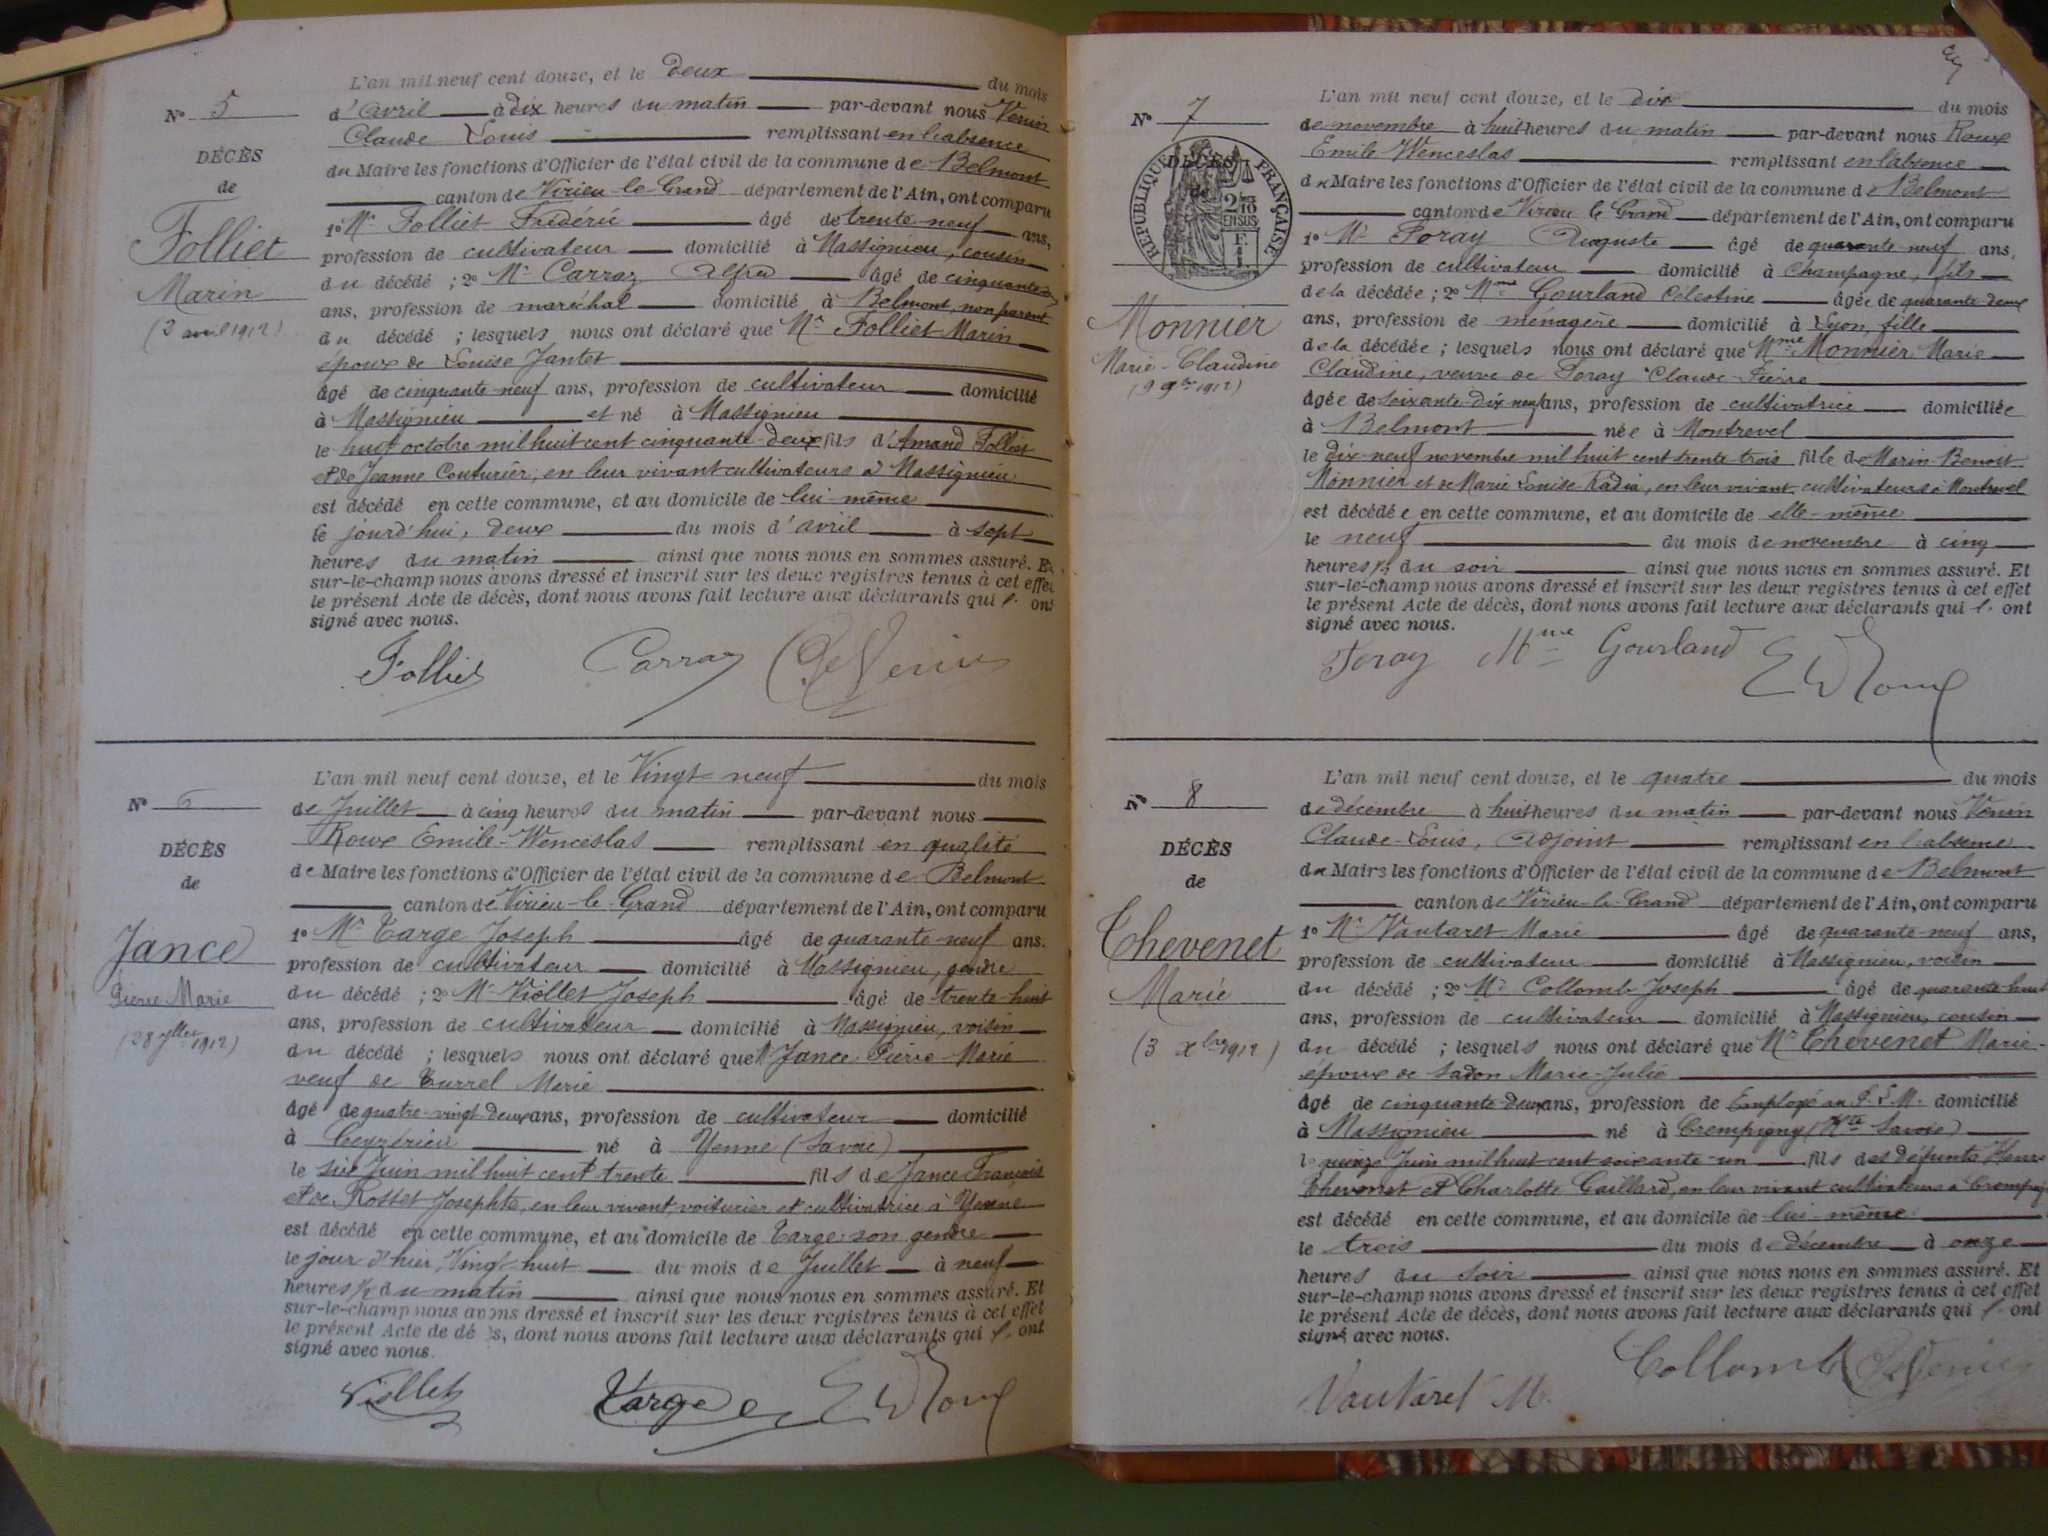 L'an mil neuf cent douze, et le deux du mois
N° 5
d'avril à dix heures du matin par-devant nous Venin
Claude Louis remplissant en l'absence
DÉCÈS
du Maire les fonctions d'Officier de l'état civil de la commune de Belmont
de
canton de Virieu-le-Grand département de l'Ain, ont comparu
Folliet
1° Mr Folliet Frédéric âgé de trente-neuf ans,
profession de cultivateur domicilié à Massignieu, cousin
Marin
du décédé ; 2° Mr Carraz Alfred âgé de cinquante
ans, profession de maréchal domicilié à Belmont, non parent
(2 avril 1912)
du décédé ; lesquels nous ont déclaré que Mr Folliet Marin
époux de Louise Jantet
âgé de cinquante-neuf ans, profession de cultivateur domicilié
à Massignieu et né à Massignieu
le huit octobre mil huit cent cinquante-deux fils d'Amand Folliet
et de Jeanne Couturier, en leur vivant cultivateurs à Massignieu
est décédé en cette commune, et au domicile de lui-même
le jourd'hui, deux du mois d'avril à sept
heures du matin ainsi que nous nous en sommes assuré. Et
sur-le-champ nous avons dressé et inscrit sur les deux registres tenus à cet effet
le présent Acte de décès, dont nous avons fait lecture aux déclarants qui l' ont
signé avec nous.
Folliet Carraz Cl Venin
L'an mil neuf cent douze, et le Vingt-neuf du mois
N° 6
de Juillet à cinq heures du matin par-devant nous
Roux Emile-Wenceslas remplissant en qualité
DÉCÈS
de Maire les fonctions d'Officier de l'état civil de la commune de Belmont
de
canton de Virieu-le-Grand département de l'Ain, ont comparu
Jance
1° Mr Targe Joseph âgé de quarante-neuf ans.
profession de cultivateur domicilié à Massignieu, gendre
Pierre Marie
du décédé ; 2° Mr Viollet Joseph âgé de trente-huit
ans, profession de cultivateur domicilié à Massignieu, voisin
(28 Jllet 1912)
du décédé ; lesquels nous ont déclaré que Mr Jance Pierre-Marie
veuf de Turrel Marie
âgé de quatre-vingt-deux ans, profession de cultivateur domicilié
à Ceyzérieu né à Yenne (Savoie)
le six Juin mil huit cent trente fils de Jance François
et de Rosset Josephte, en leur vivant, voiturier et cultivatrice à Yenne
est décédé en cette commune, et au domicile de Targe son gendre
le jour d'hier, Vingt-huit du mois de Juillet à neuf
heures ½ du matin ainsi que nous nous en sommes assuré. Et
sur-le-champ nous avons dressé et inscrit sur les deux registres tenus à cet effet
le présent Acte de décès, dont nous avons fait lecture aux déclarants qui l' ont
signé avec nous.
Viollet Targe E W Roux
L'an mil neuf cent douze, et le dix du mois
N° 7
de novembre à huit heures du matin par-devant nous Roux
Emile-Wenceslas remplissant en l'absence
DÉCÈS
de
RÉPUBLIQUE FRANÇAISE
2/10 EN SUS
du Maire les fonctions d'Officier de l'état civil de la commune de Belmont
canton de Virieu le Grand département de l'Ain, ont comparu
1° Mr Foray Auguste âgé de quarante-neuf ans,
profession de cultivateur domicilié à Champagne, fils
de la décédée ; 2° Mme Gourland Célestine âgée de quarante-deux
Monnier
ans, profession de ménagère domicilié à Lyon, fille
Marie-Claudine
de la décédée ; lesquels nous ont déclaré que Mme Monnier Marie
(9 9bre 1912)
Claudine, veuve de Foray Claude-Pierre
âgée de soixante-dix-neuf ans, profession de cultivatrice domiciliée
à Belmont née à Montrevel
le dix-neuf novembre mil huit cent trente-trois fille de Marin-Benoit
Monnier et de Marie Louise, en leur vivant cultivateurs à Montrevel
est décédée en cette commune, et au domicile de elle-même
le neuf du mois de novembre à cinq
heures ½ du soir ainsi que nous nous en sommes assuré. Et
sur-le-champ nous avons dressé et inscrit sur les deux registres tenus à cet effet
le présent Acte de décès, dont nous avons fait lecture aux déclarants qui l' ont
signé avec nous.
Foray Mme Gourland E W Roux
L'an mil neuf cent douze, et le quatre du mois
N° 8
de décembre à huit heures du matin par-devant nous Venin
Claude-Louis, Adjoint remplissant en l'absence
DÉCÈS
du Maire les fonctions d'Officier de l'état civil de la commune de Belmont
de
canton de Virieu-le-Grand département de l'Ain, ont comparu
Thevenet
1° Mr Vautaret Marie âgé de quarante-neuf ans,
profession de cultivateur domicilié à Massignieu, voisin
Marie
du décédé ; 2° Mr Collomb Joseph âgé de quarante-huit
ans, profession de cultivateur domicilié à Massignieu, cousin
(3 Xbre 1912)
du décédé ; lesquels nous ont déclaré que Mr Thevenet Marie-
époux de Sadon Marie-Julie
âgé de cinquante-deux ans, profession de Employé au P.L.M. domicilié
à Massignieu né à Crempigny (Hte Savoie)
le quinze Juin mil huit cent soixante-un fils des défunts Henri
Thevenet et Charlotte Gaillard, en leur vivant cultivateurs à Crempigny
est décédé en cette commune, et au domicile de lui-même
le trois du mois de décembre à onze
heures du soir ainsi que nous nous en sommes assuré. Et
sur-le-champ nous avons dressé et inscrit sur les deux registres tenus à cet effet
le présent Acte de décès, dont nous avons fait lecture aux déclarants qui l' ont
signé avec nous.
Vautaret M. Collomb Cl Venin